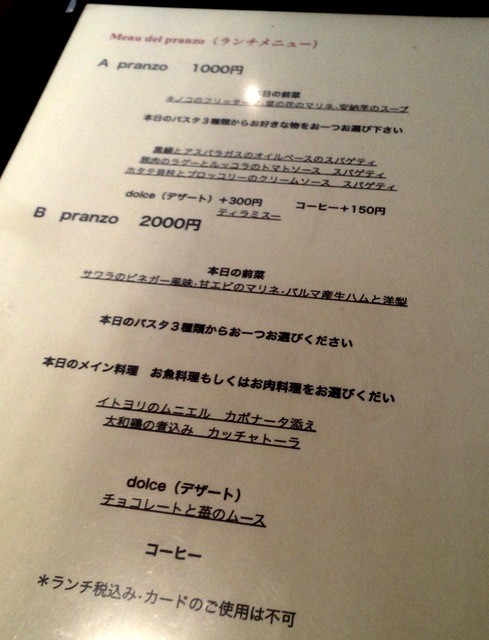 Menu del pranzo（ランチメニュー）
A pranzo 1000円
本日の前菜
キノコのフリッター 菜の花のマリネ・安納芋のスープ
本日のパスタ３種類からお好きな物をお一つお選び下さい
とアスパラガスのオイルベースのスパゲティ
豚肉のラグーとルッコラのトマトソース スパゲティ
ホタテ貝柱とブロッコリーのクリームソース スパゲティ
dolce（デザート）＋300円 コーヒー＋150円
ティラミスー
B pranzo 2000円
本日の前菜
サワラのビネガー風味・甘エビのマリネ・パルマ産生ハムと洋梨
本日のパスタ３種類からお一つお選びください
本日のメイン料理 お魚料理もしくはお肉料理をお選びくだい
イトヨリのムニエル カポナータ添え
大和鶏の煮込み カッチャトーラ
dolce（デザート）
チョコレートと苺のムース
コーヒー
＊ランチ税込み・カードのご使用は不可